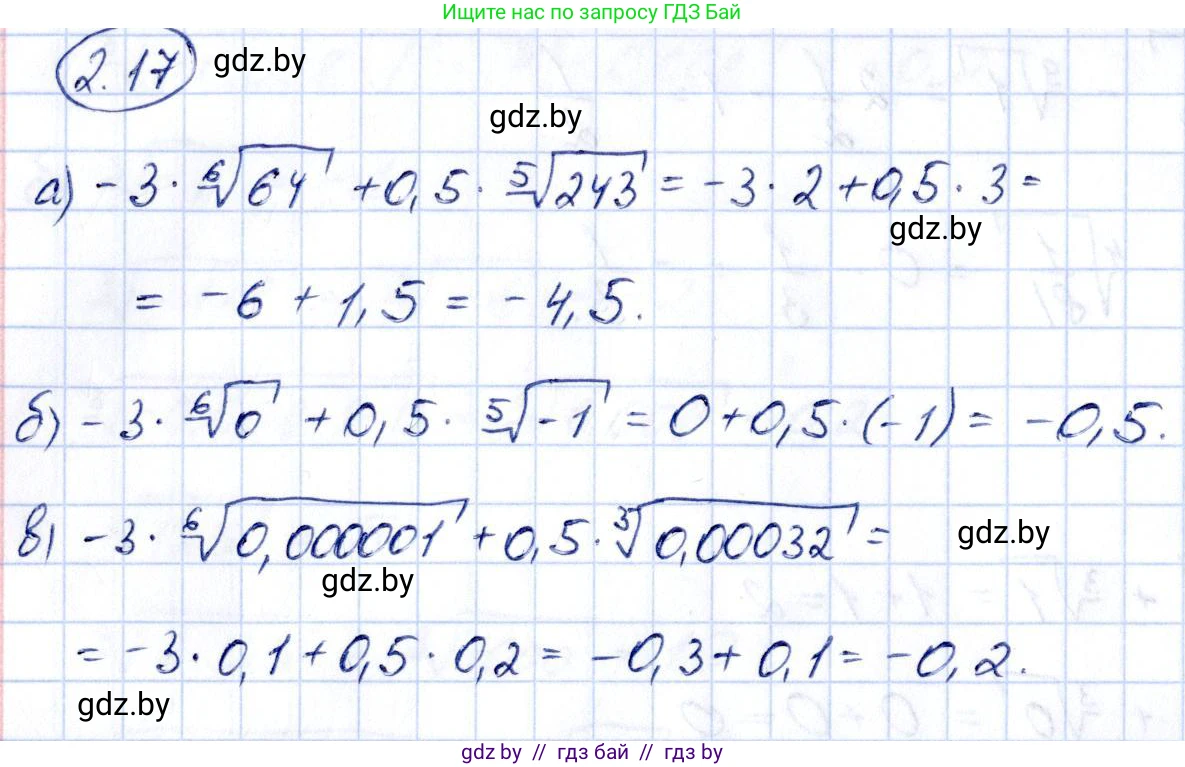 Ищите нас по запросу ГДЗ Бай
2.17 gdz.by
gdz.by
а) -3·⁶√64 + 0,5·⁵√243 = -3·2 + 0,5·3 =
gdz.by
= -6 + 1,5 = -4,5.
б) -3·⁶√0 + 0,5·⁵√-1 = 0 + 0,5·(-1) = -0,5.
в) -3·⁶√0,000001 + 0,5·³√0,00032 =
gdz.by
gdz.by
= -3·0,1 + 0,5·0,2 = -0,3 + 0,1 = -0,2.
gdz.by
gdz by // гдз бай // гдз by